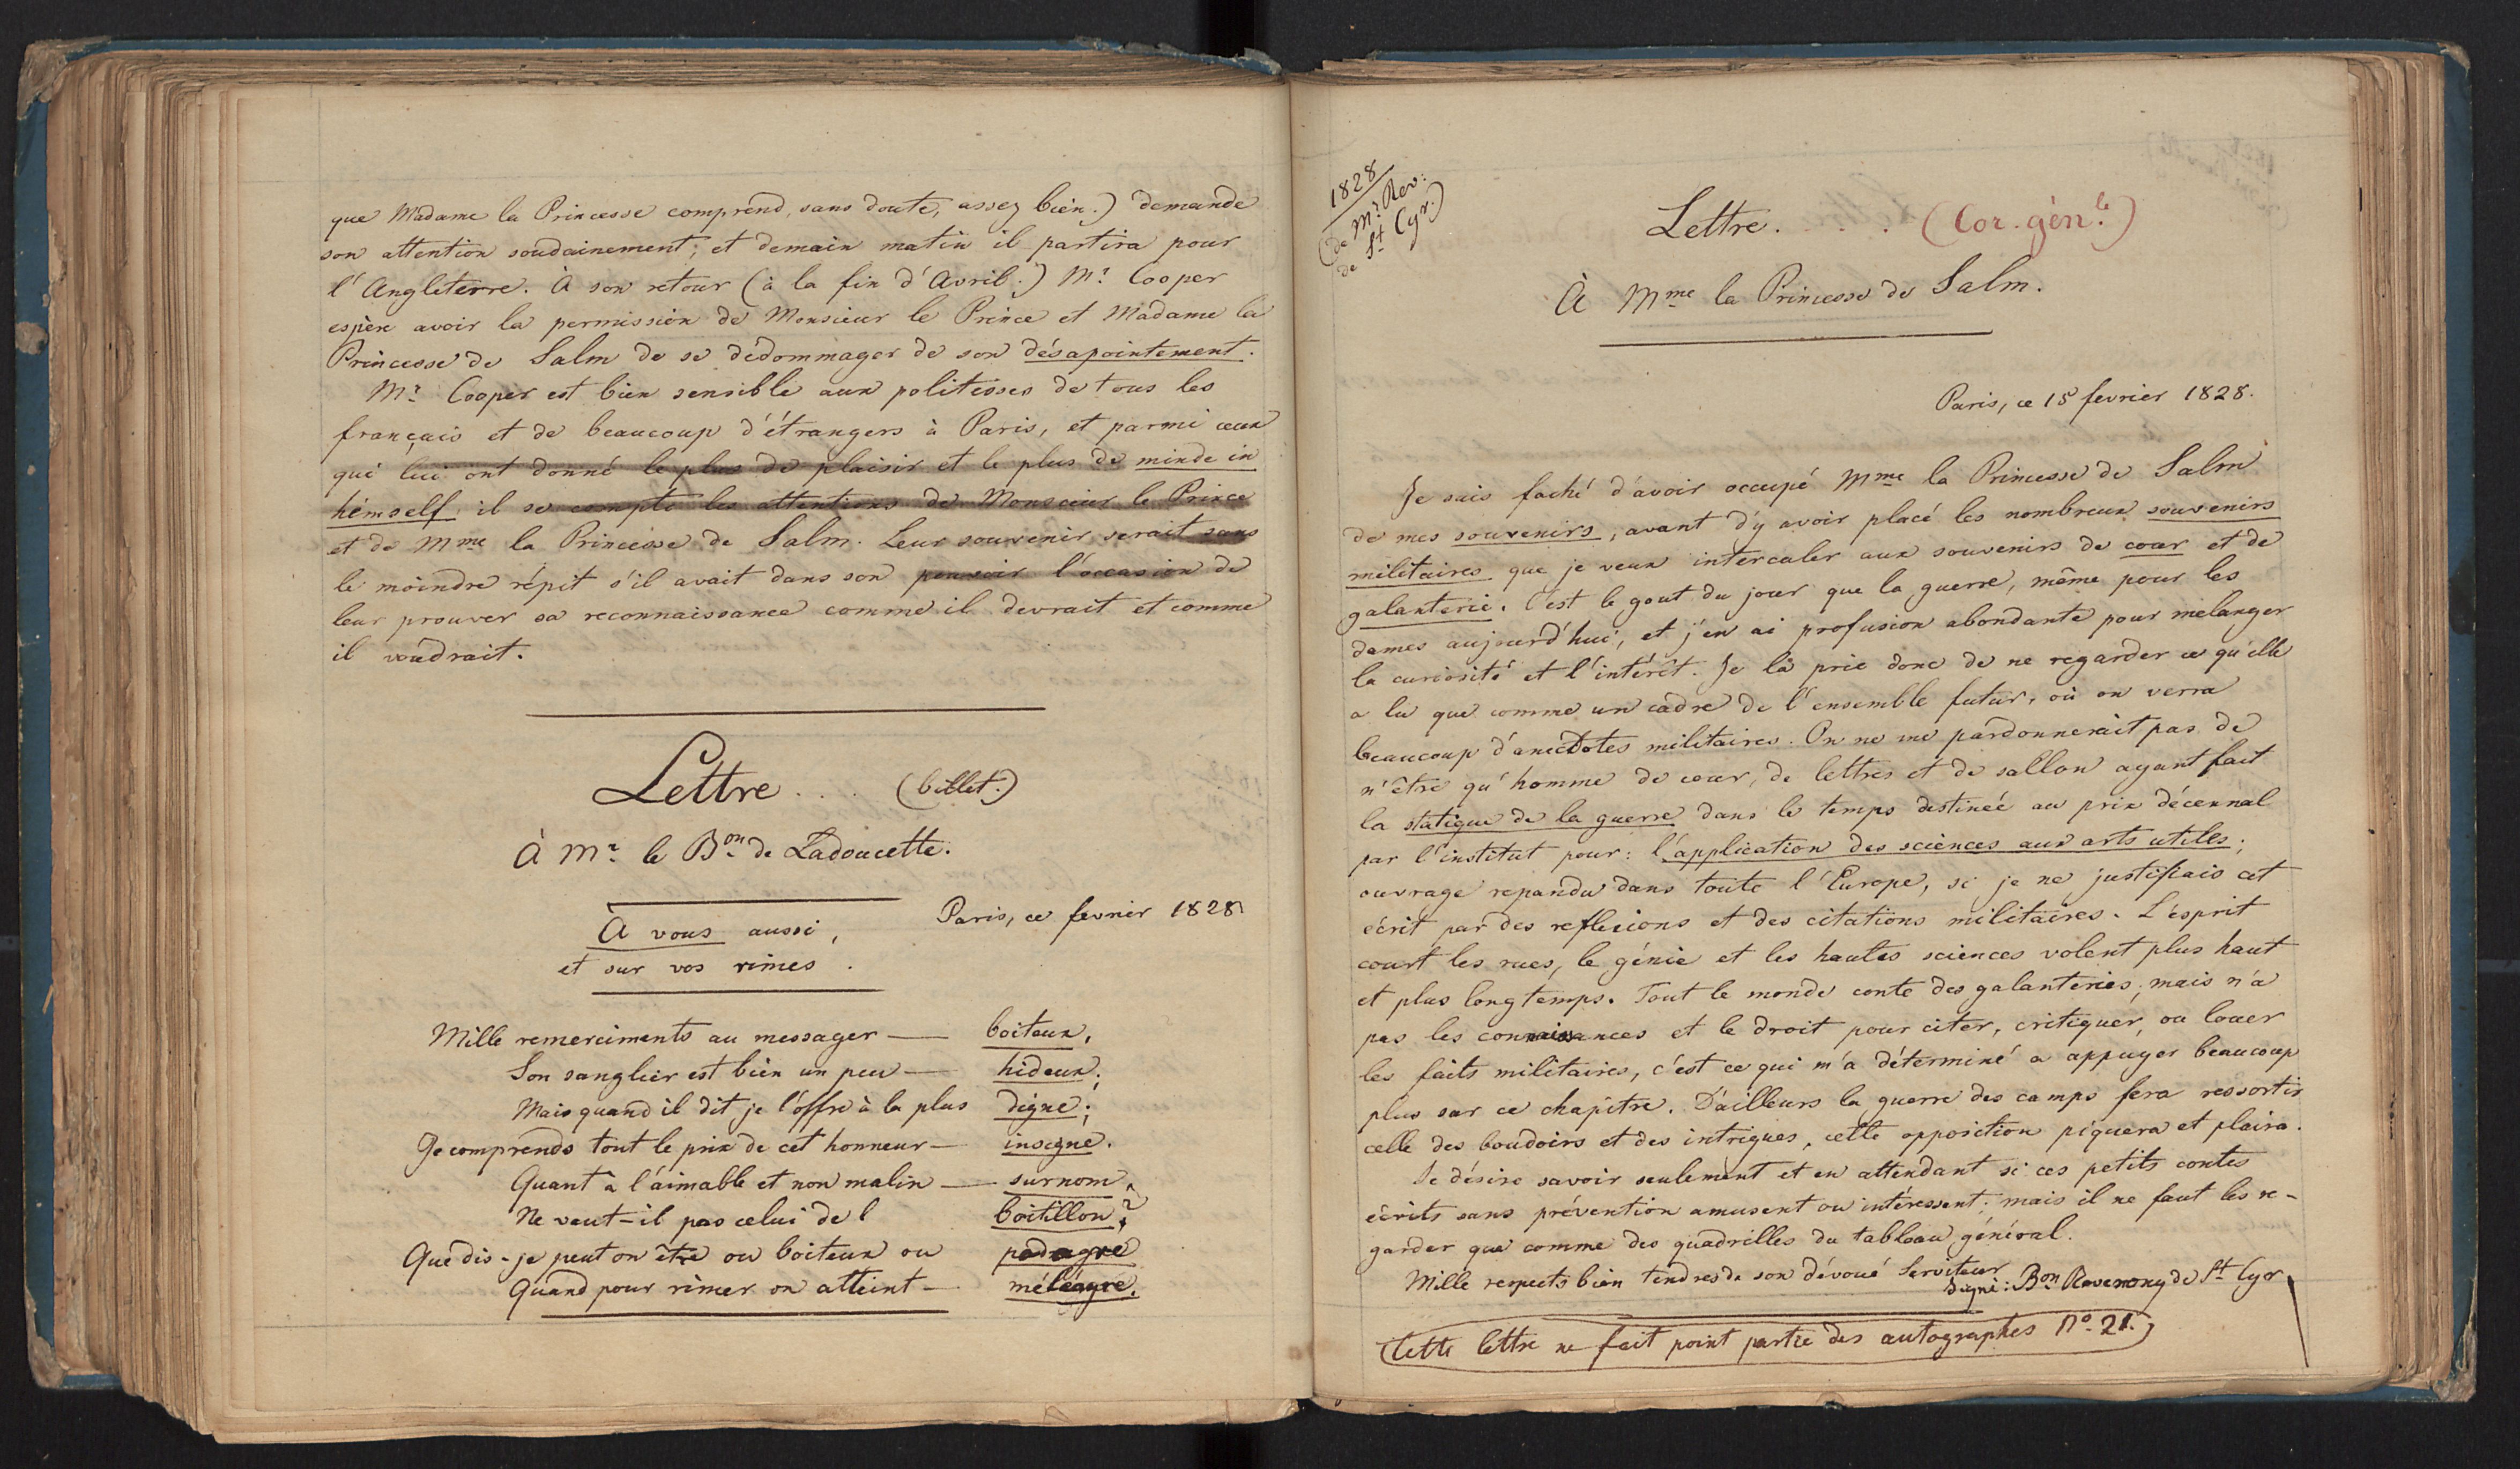 que Madame la Princesse comprend, sans doute, assez bien.) demande
son attention soudainement; et demain matin il partira pour
l'Angleterre. À son retour (à la fin d'Avril.) Mr. Cooper
espère avoir la permission de Monsieur le Prince et Madame la
Princesse de Salm de se dédommager de son désapointement.
Mr. Cooper est bien sensible aux politesses de tous les
français et de beaucoup d'étrangers à Paris, et parmi ceux
qui lui ont donné le plus de plaisir et le plus de minde in
himself il se compte les attentions de Monsieur le Prince
et de Mme la Princesse de Salm. Leur souvenir serait sans
le moindre répit s'il avait dans son pouvoir l'occasion de
leur prouver sa reconnaissance comme il devrait et comme
il voudrait.
Lettre . . . (billet.)
À Mr. le Bon. de Ladoucette.
Paris, ce fevrier 1828
À vous aussi,
et sur vos rimes.
Mille remerciments au messager — boiteux,
Son sanglier est bien un peu — hideux;
Mais quand il dit je l'offre à la plus digne;
Je comprends tout le prix de cet honneur — insigne.
Quant à l'aimable et non malin — surnom,
Ne vaut-il pas celui de l boitillon?
Que dis-je peut on être ou boiteux ou podagre
Quand pour rimer on atteint — méléagre.
1828
(de Mr. Rev:
de St. Cyr.)
Lettre. . . (Cor. génle.)
À Mme la Princesse de Salm.
Paris, ce 15 fevrier 1828.
Je suis faché d'avoir occupé Mme la Princesse de Salm
de mes souvenirs, avant d'y avoir placé les nombreux souvenirs
militaires que je veux intercaler aux souvenirs de cour et de
galanterie. C'est le gout du jour que la guerre, même pour les
dames aujourd'hui, et j'en ai profusion abondante pour mélanger
la curiosité et l'intérêt. Je la prie donc de ne regarder ce qu'elle
a lu que comme un cadre de l'ensemble futur, où on verra
beaucoup d'anecdotes militaires. On ne me pardonnerait pas de
n'être qu'homme de cour, de lettres et de sallon ayant fait
la statique de la guerre dans le temps destinée au prix décennal
par l'institut pour: l'application des sciences aux arts utiles;
ouvrage repandu dans toute l'Europe, si je ne justifiais cet
écrit par des reflexions et des citations militaires. L'esprit
court les rues, le génie et les hautes sciences volent plus haut
et plus longtemps. Tout le monde conte des galanteries, mais n'a
pas les connaissances et le droit pour citer, critiquer, ou louer
les faits militaires, c'est ce qui m'a déterminé a appuyer beaucoup
plus sur ce chapitre. D'ailleurs la guerre des camps fera ressortir
celle des boudoirs et des intrigues, cette opposition piquera et plaira.
Je désire savoir seulement et en attendant si ces petits contes
écrits sans prévention amusent ou intéressent; mais il ne faut les re-
garder que comme des quadrilles du tableau général.
Mille respects bien tendres de son dévoué Serviteur
Signé: Bon Reverony de St. Cyr.
(Cette lettre ne fait point partie des autographes No. 21.)